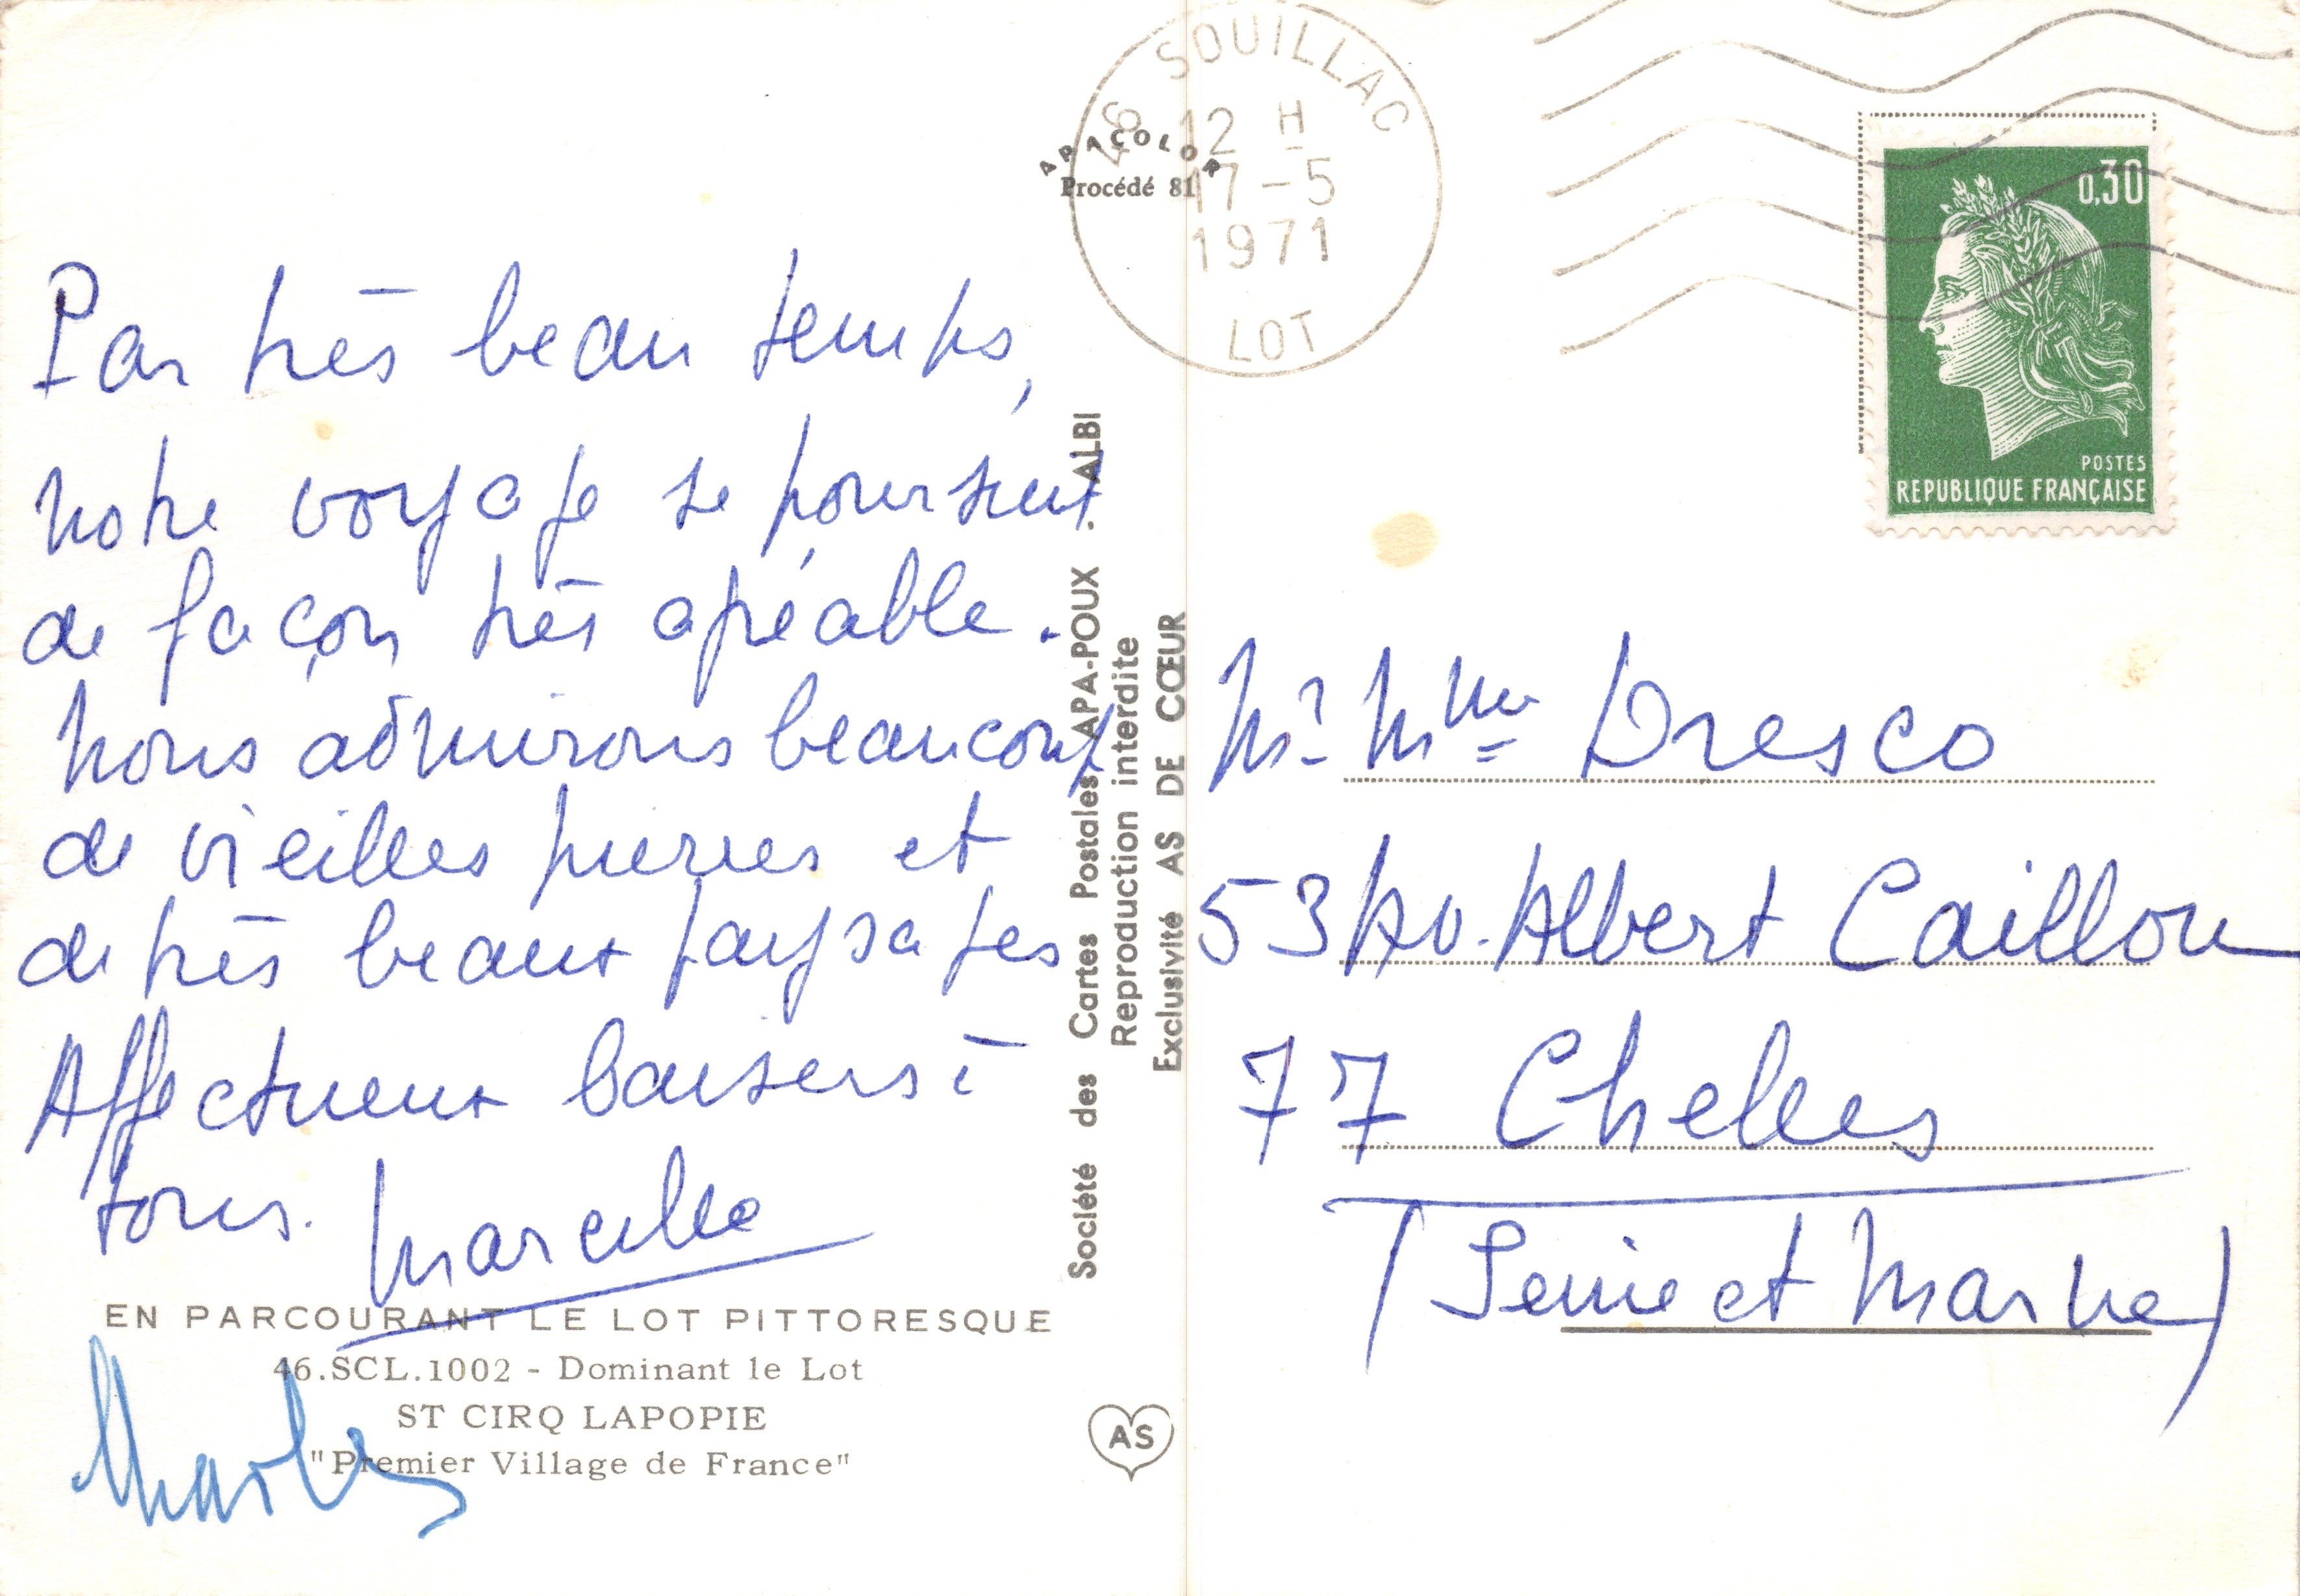 46 SOUILLAC
12 H
17-5
1971
LOT
APACOLOR
Procédé 81
0,30
POSTES
REPUBLIQUE FRANÇAISE
Par très beau temps,
notre voyage se poursuit
de façon très agréable.
Nous admirons beaucoup
de vieilles pierres et
de très beaux paysages
Affectueux baisers à
tous. Marcelle
EN PARCOURANT LE LOT PITTORESQUE
46.SCL.1002 - Dominant le Lot
ST CIRQ LAPOPIE
"Premier Village de France"
Société des Cartes Postales APA-POUX - ALBI
Reproduction interdite
Exclusivité AS DE CŒUR
AS
Mr Mme Dresco
53 Av. Albert Caillou
77 Chelles
(Seine et Marne)